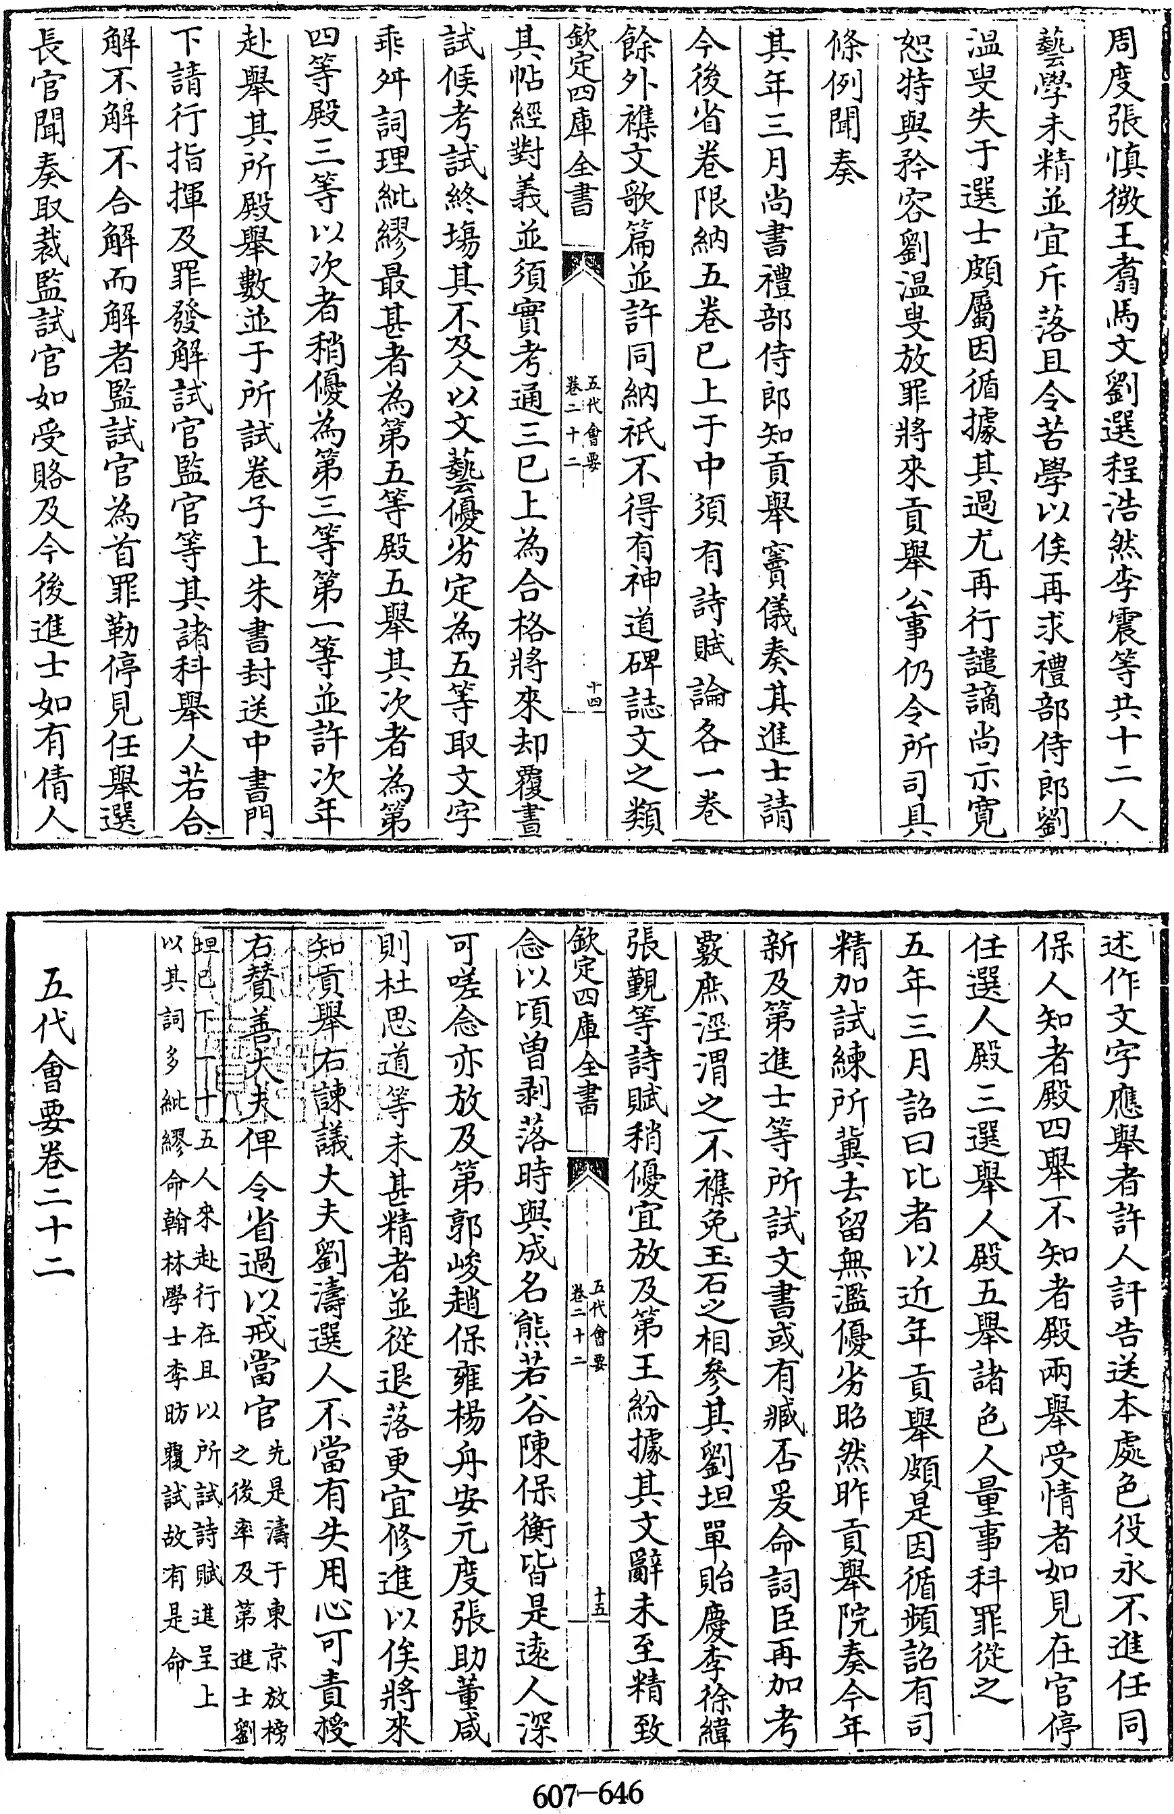 周度張慎微王翥馬文劉選程浩然李震等共十二人
藝學未精並宜斥落且令苦學以俟再求禮部侍郎劉
温叟失于選士頗屬因循據其過尤再行譴謫尚示寛
恕特與矜容劉温叟放罪將來貢舉公事仍令所司具
條例聞奏
其年三月尚書禮部侍郎知貢舉竇儀奏其進士請
今後省卷限納五卷已上于中須有詩賦論各一卷
餘外襍文歌篇並許同納祇不得有神道碑誌文之類
欽定四庫全書
五代會要
卷二十二
十四
其帖經對義並須實考通三已上為合格將來却覆晝
試候考試終塲其不及人以文藝優劣定為五等取文字
乖舛詞理紕繆最甚者為第五等殿五舉其次者為第
四等殿三等以次者稍優為第三等第一等並許次年
赴舉其所殿舉數並于所試卷子上朱書封送中書門
下請行指揮及罪發解試官監官等其諸科舉人若合
解不解不合解而解者監試官為首罪勒停見任舉選
長官聞奏取裁監試官如受賂及今後進士如有倩人
述作文字應舉者許人訐告送本處色役永不進任同
保人知者殿四舉不知者殿兩舉受情者如見在官停
任選人殿三選舉人殿五舉諸色人量事科罪從之
五年三月詔曰比者以近年貢舉頗是因循頻詔有司
精加試練所冀去留無濫優劣昭然昨貢舉院奏今年
新及第進士等所試文書或有臧否爰命詞臣再加考
覈庶涇渭之不襍免玉石之相參其劉坦單貽慶李徐緯
張覲等詩賦稍優宜放及第王紛據其文辭未至精致
欽定四庫全書
五代會要
卷二十二
十五
念以頃曽剥落時與成名熊若谷陳保衡皆是逺人深
可嗟念亦放及第郭峻趙保雍楊舟安元度張助董咸
則杜思道等未甚精者並從退落更宜修進以俟將來
知貢舉右諫議大夫劉濤選人不當有失用心可責授
右贊善大夫俾令省過以戒當官
先是濤于東京放榜
之後率及第進士劉
坦已下一十五人來赴行在且以所試詩賦進呈上
以其詞多紕繆命翰林學士李昉覆試故有是命
五代會要卷二十二
607-646